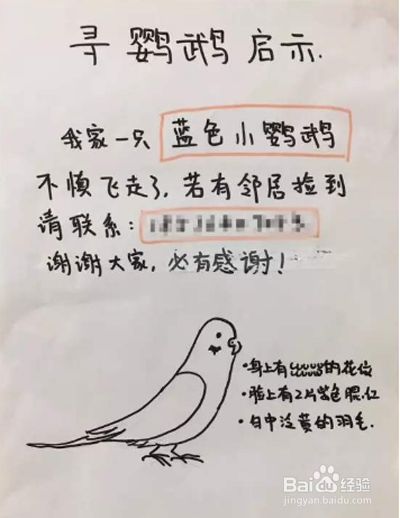 寻鹦鹉启示.
我家一只 蓝色小鹦鹉
不慎飞走了,若有邻居捡到
请联系:
谢谢大家,必有感谢!
·身上有的花纹
·脸上有2片紫色腮红
·白中泛黄的羽毛.
Baidu经验
jingyan.baidu.com